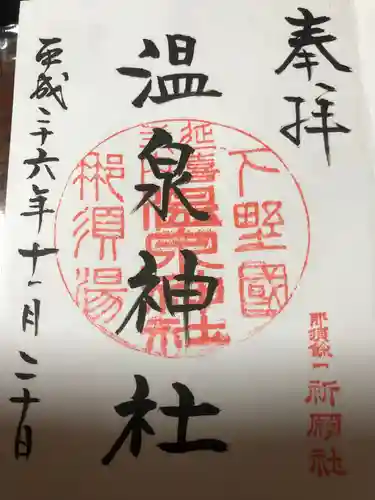 奉拝
那須餘一 祈願社
下野國
延喜
温泉神社
那須湯
平成二十六年十一月二十日